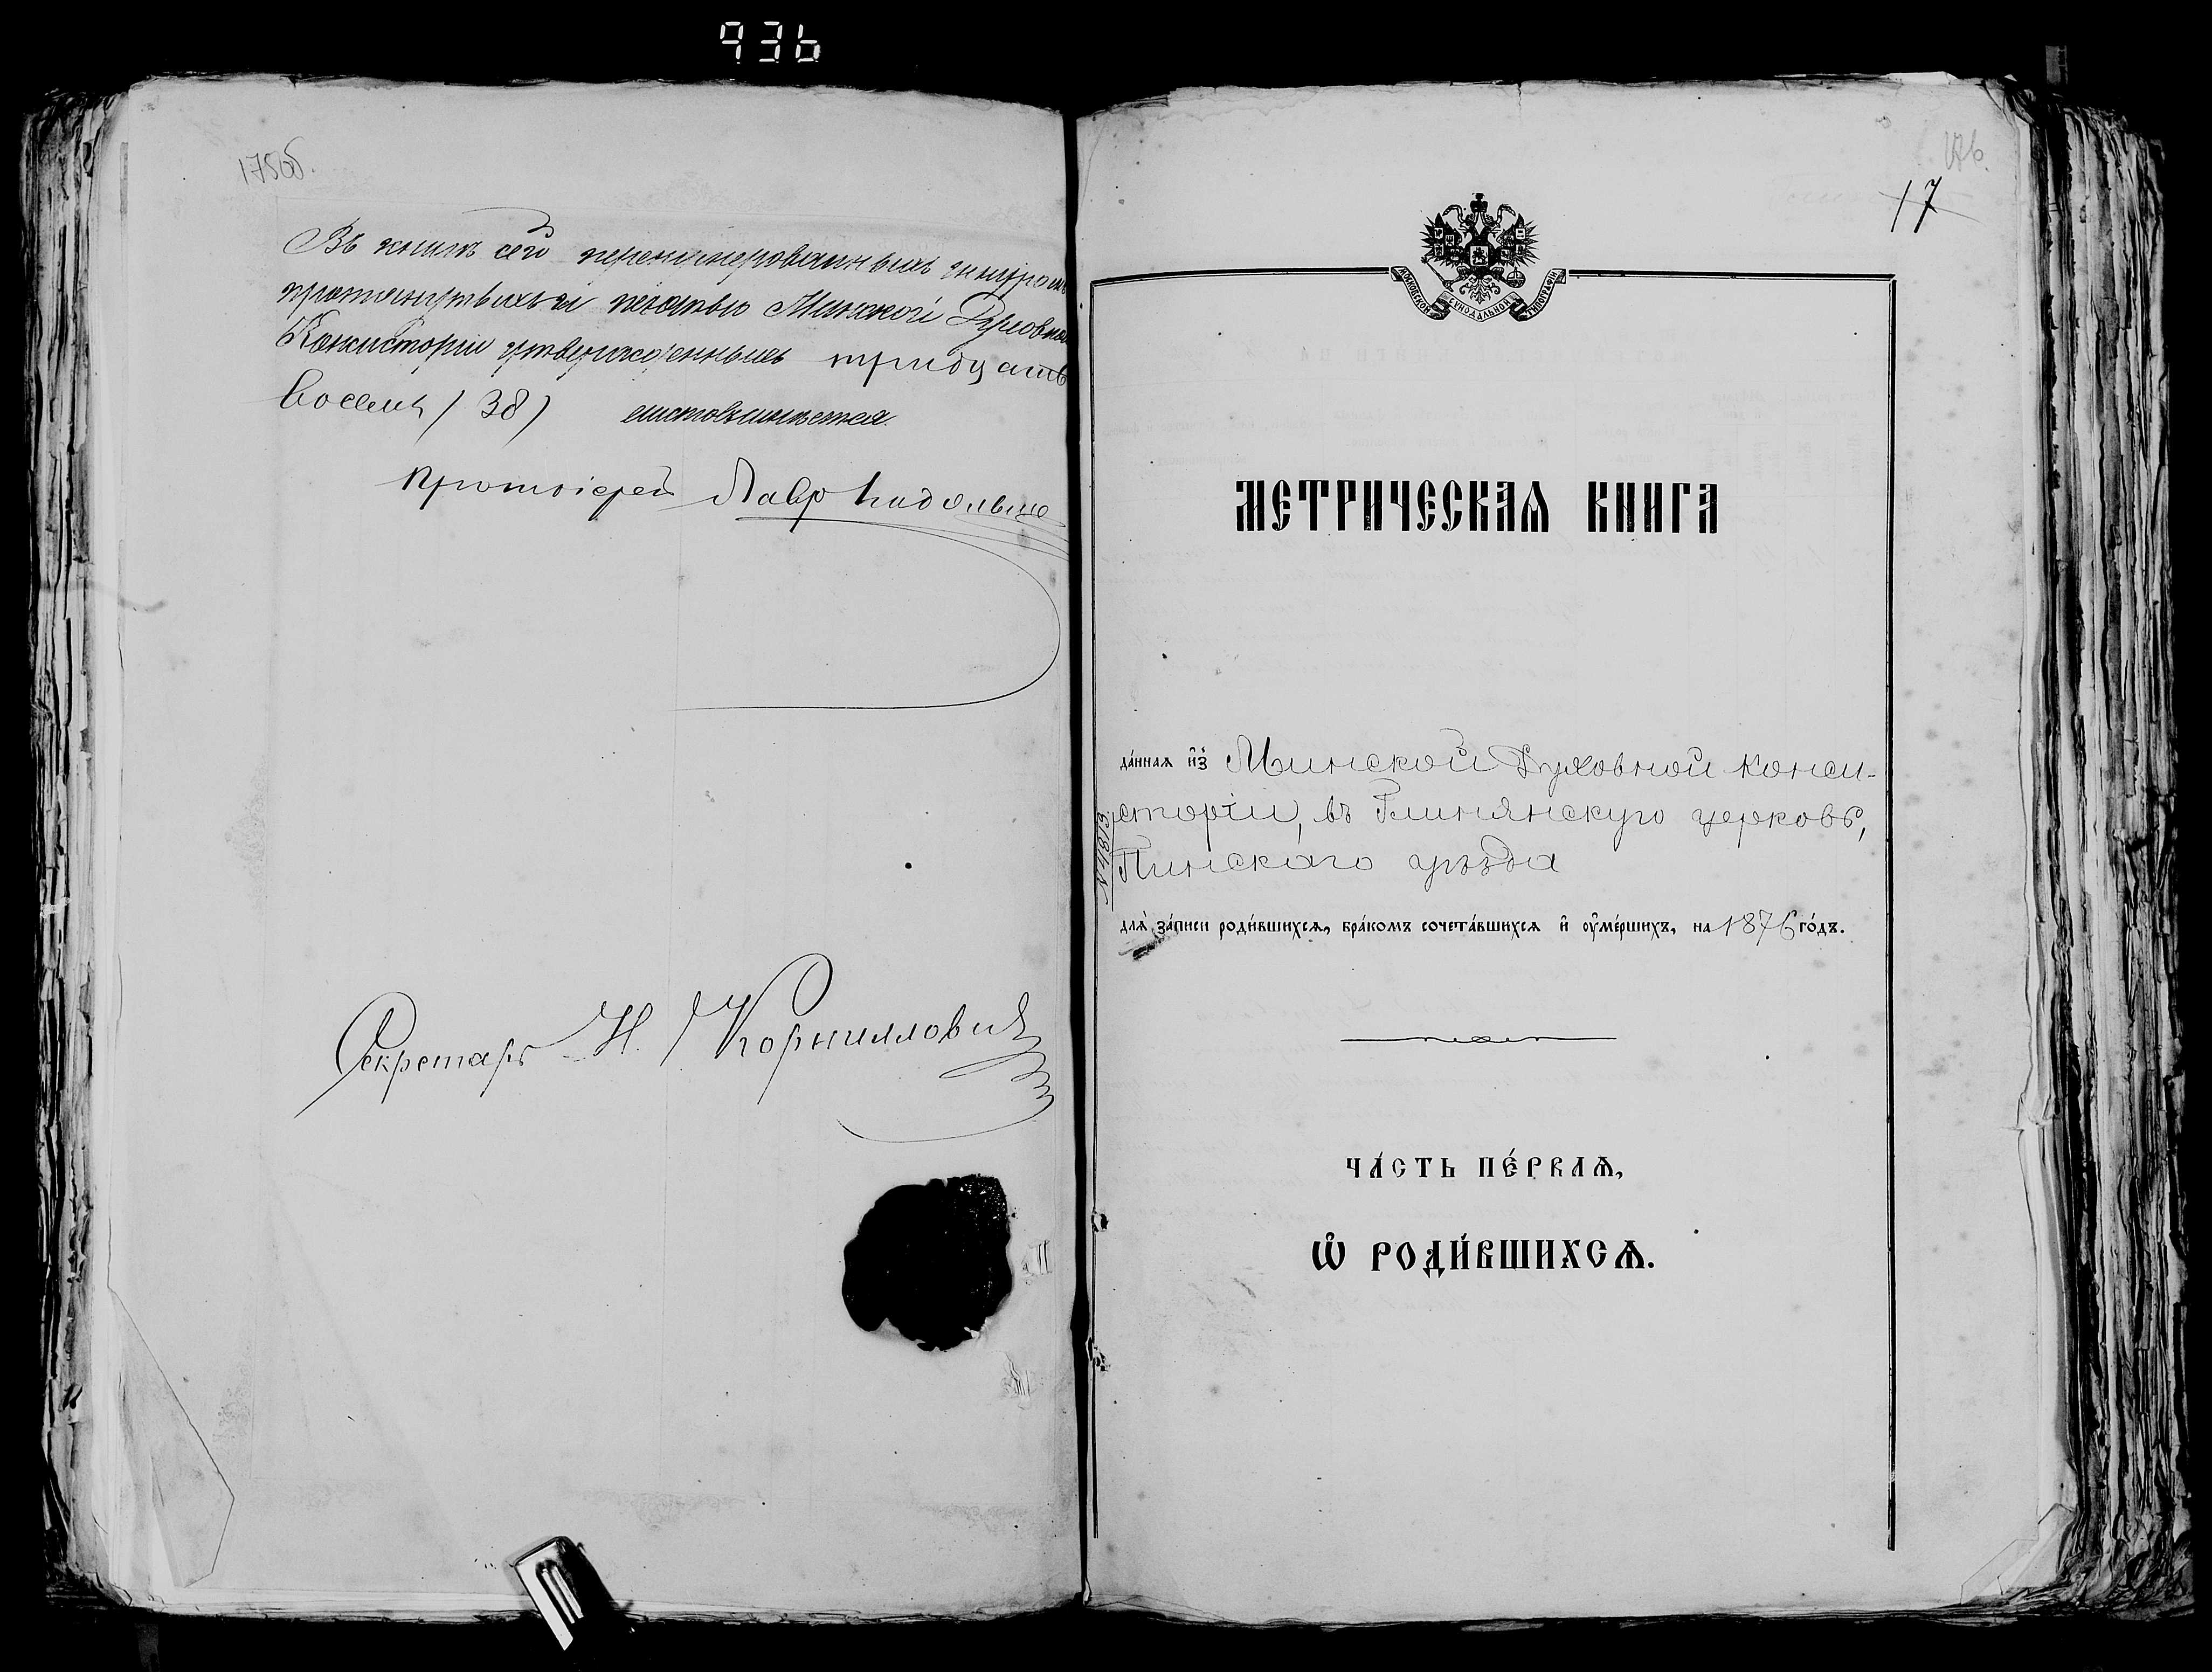 936
175об.
Въ книгѣ сей перенумерованныхъ шнуромъ
протянутыхъ и печатью Минской Духовной
Консисторіи утвержденныхъ тридцать
восемь (38) листовъ имѣется.
Протоіерей Лавр
Секретарь Н. Корнилович
176.
17
МОСКОВСКОЙ СѴНОДАЛЬНОЙ ТИПОГРАФІИ
МЕТРИЧЕСКАѦ КНИГА
да́ннаѧ и҆з̾ Минской Духовной Конси-
сторіи, въ Глинянскую церковь,
Пинскаго уѣзда
№4819
длѧ̀ за́писи роди́вшихсѧ, бра́комъ сочета́вшихсѧ и҆ ᲂу҆ме́ршихъ, на 1876 го́дъ.
ЧА́СТЬ ПЕ́РВАѦ,
Ѡ҆ РОДИ́ВШИХСѦ.